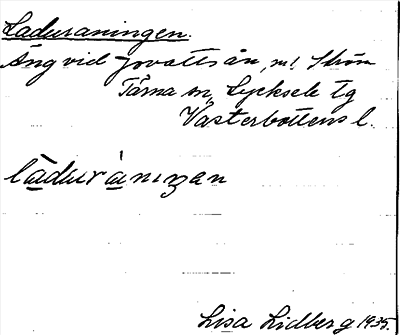 Laduraningen.
Äng vid Jovattsån, m! Ström
Tärna sn, Lycksele tg
Västerbottens l.
làduràniŋan
Lisa Lidberg 1935.